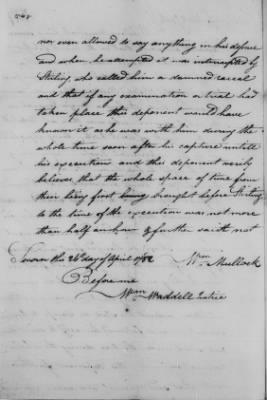 nor even allowed to say anything in his defence
and when he attempted it was interrupted by
Stirling who called him a damned rascal
and that if any examination or trial had
taken place this deponent would have
known it as he was with him during the
whole time soon after his capture untill
his execution and this deponent verily
believes that the whole space of time from
their being first being brought before Stirling
to the time of the execution was not more
than half an hour & further saith not
Sworn the 26 day of April 1782
Wm Mullock
Before me
Wm Waddell